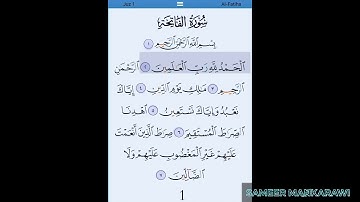 Juz 1
Al-Fatiha
سُورَةُ الْفَاتِحَةِ
بِسْمِ اللَّهِ الرَّحْمَٰنِ الرَّحِيمِ ١
الْحَمْدُ لِلَّهِ رَبِّ الْعَالَمِينَ ٢ الرَّحْمَٰنِ
الرَّحِيمِ ٣ مَالِكِ يَوْمِ الدِّينِ ٤ إِيَّاكَ
نَعْبُدُ وَإِيَّاكَ نَسْتَعِينُ ٥ اهْدِنَا
الصِّرَاطَ الْمُسْتَقِيمَ ٦ صِرَاطَ الَّذِينَ أَنْعَمْتَ
عَلَيْهِمْ غَيْرِ الْمَغْضُوبِ عَلَيْهِمْ وَلَا
الضَّالِّينَ ٧
1
SAMEER MANKARAWI